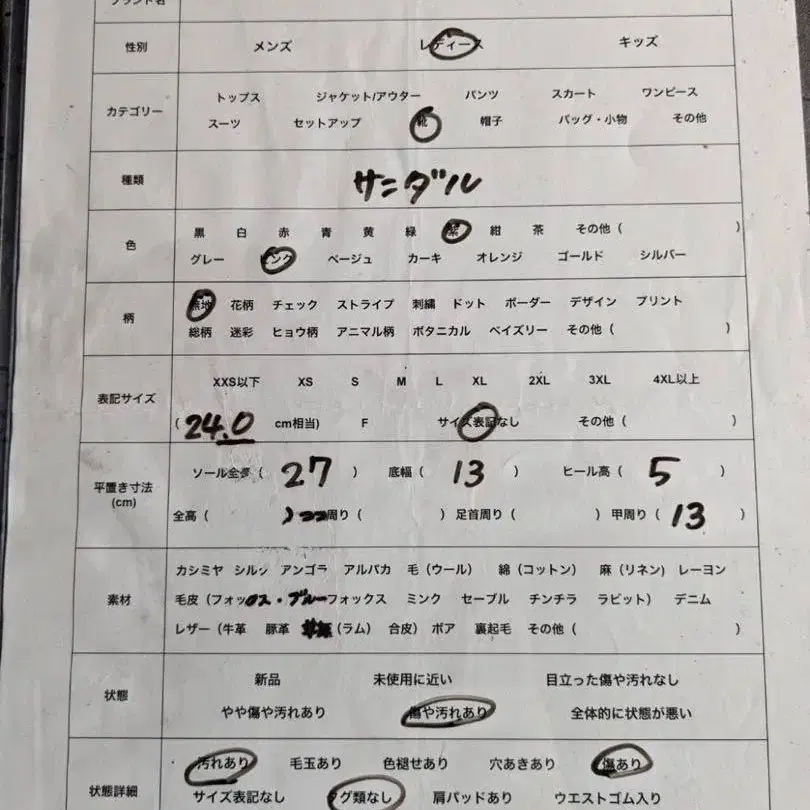 ブランド名
性別 メンズ レディース キッズ
カテゴリー トップス ジャケット/アウター パンツ スカート ワンピース
スーツ セットアップ 靴 帽子 バッグ・小物 その他
種類 サンダル
色 黒 白 赤 青 黄 緑 紫 紺 茶 その他 ( )
グレー ピンク ベージュ カーキ オレンジ ゴールド シルバー
柄 無地 花柄 チェック ストライプ 刺繍 ドット ボーダー デザイン プリント
総柄 迷彩 ヒョウ柄 アニマル柄 ボタニカル ペイズリー その他 ( )
表記サイズ XXS以下 XS S M L XL 2XL 3XL 4XL以上
( 24.0 cm相当) F サイズ表記なし その他 ( )
平置き寸法 (cm) ソール全長 ( 27 ) 底幅 ( 13 ) ヒール高 ( 5 )
全高 ( ) 周り ( ) 足首周り ( ) 甲周り ( 13 )
素材 カシミヤ シルク アンゴラ アルパカ 毛 (ウール) 綿 (コットン) 麻 (リネン) レーヨン
毛皮 (フォックス・ブルーフォックス ミンク セーブル チンチラ ラビット) デニム
レザー (牛革 豚革 (ラム) 合皮) ボア 裏起毛 その他 ( )
状態 新品 未使用に近い 目立った傷や汚れなし
やや傷や汚れあり 傷や汚れあり 全体的に状態が悪い
状態詳細 汚れあり 毛玉あり 色褪せあり 穴あきあり 傷あり
サイズ表記なし タグ類なし 肩パッドあり ウエストゴム入り